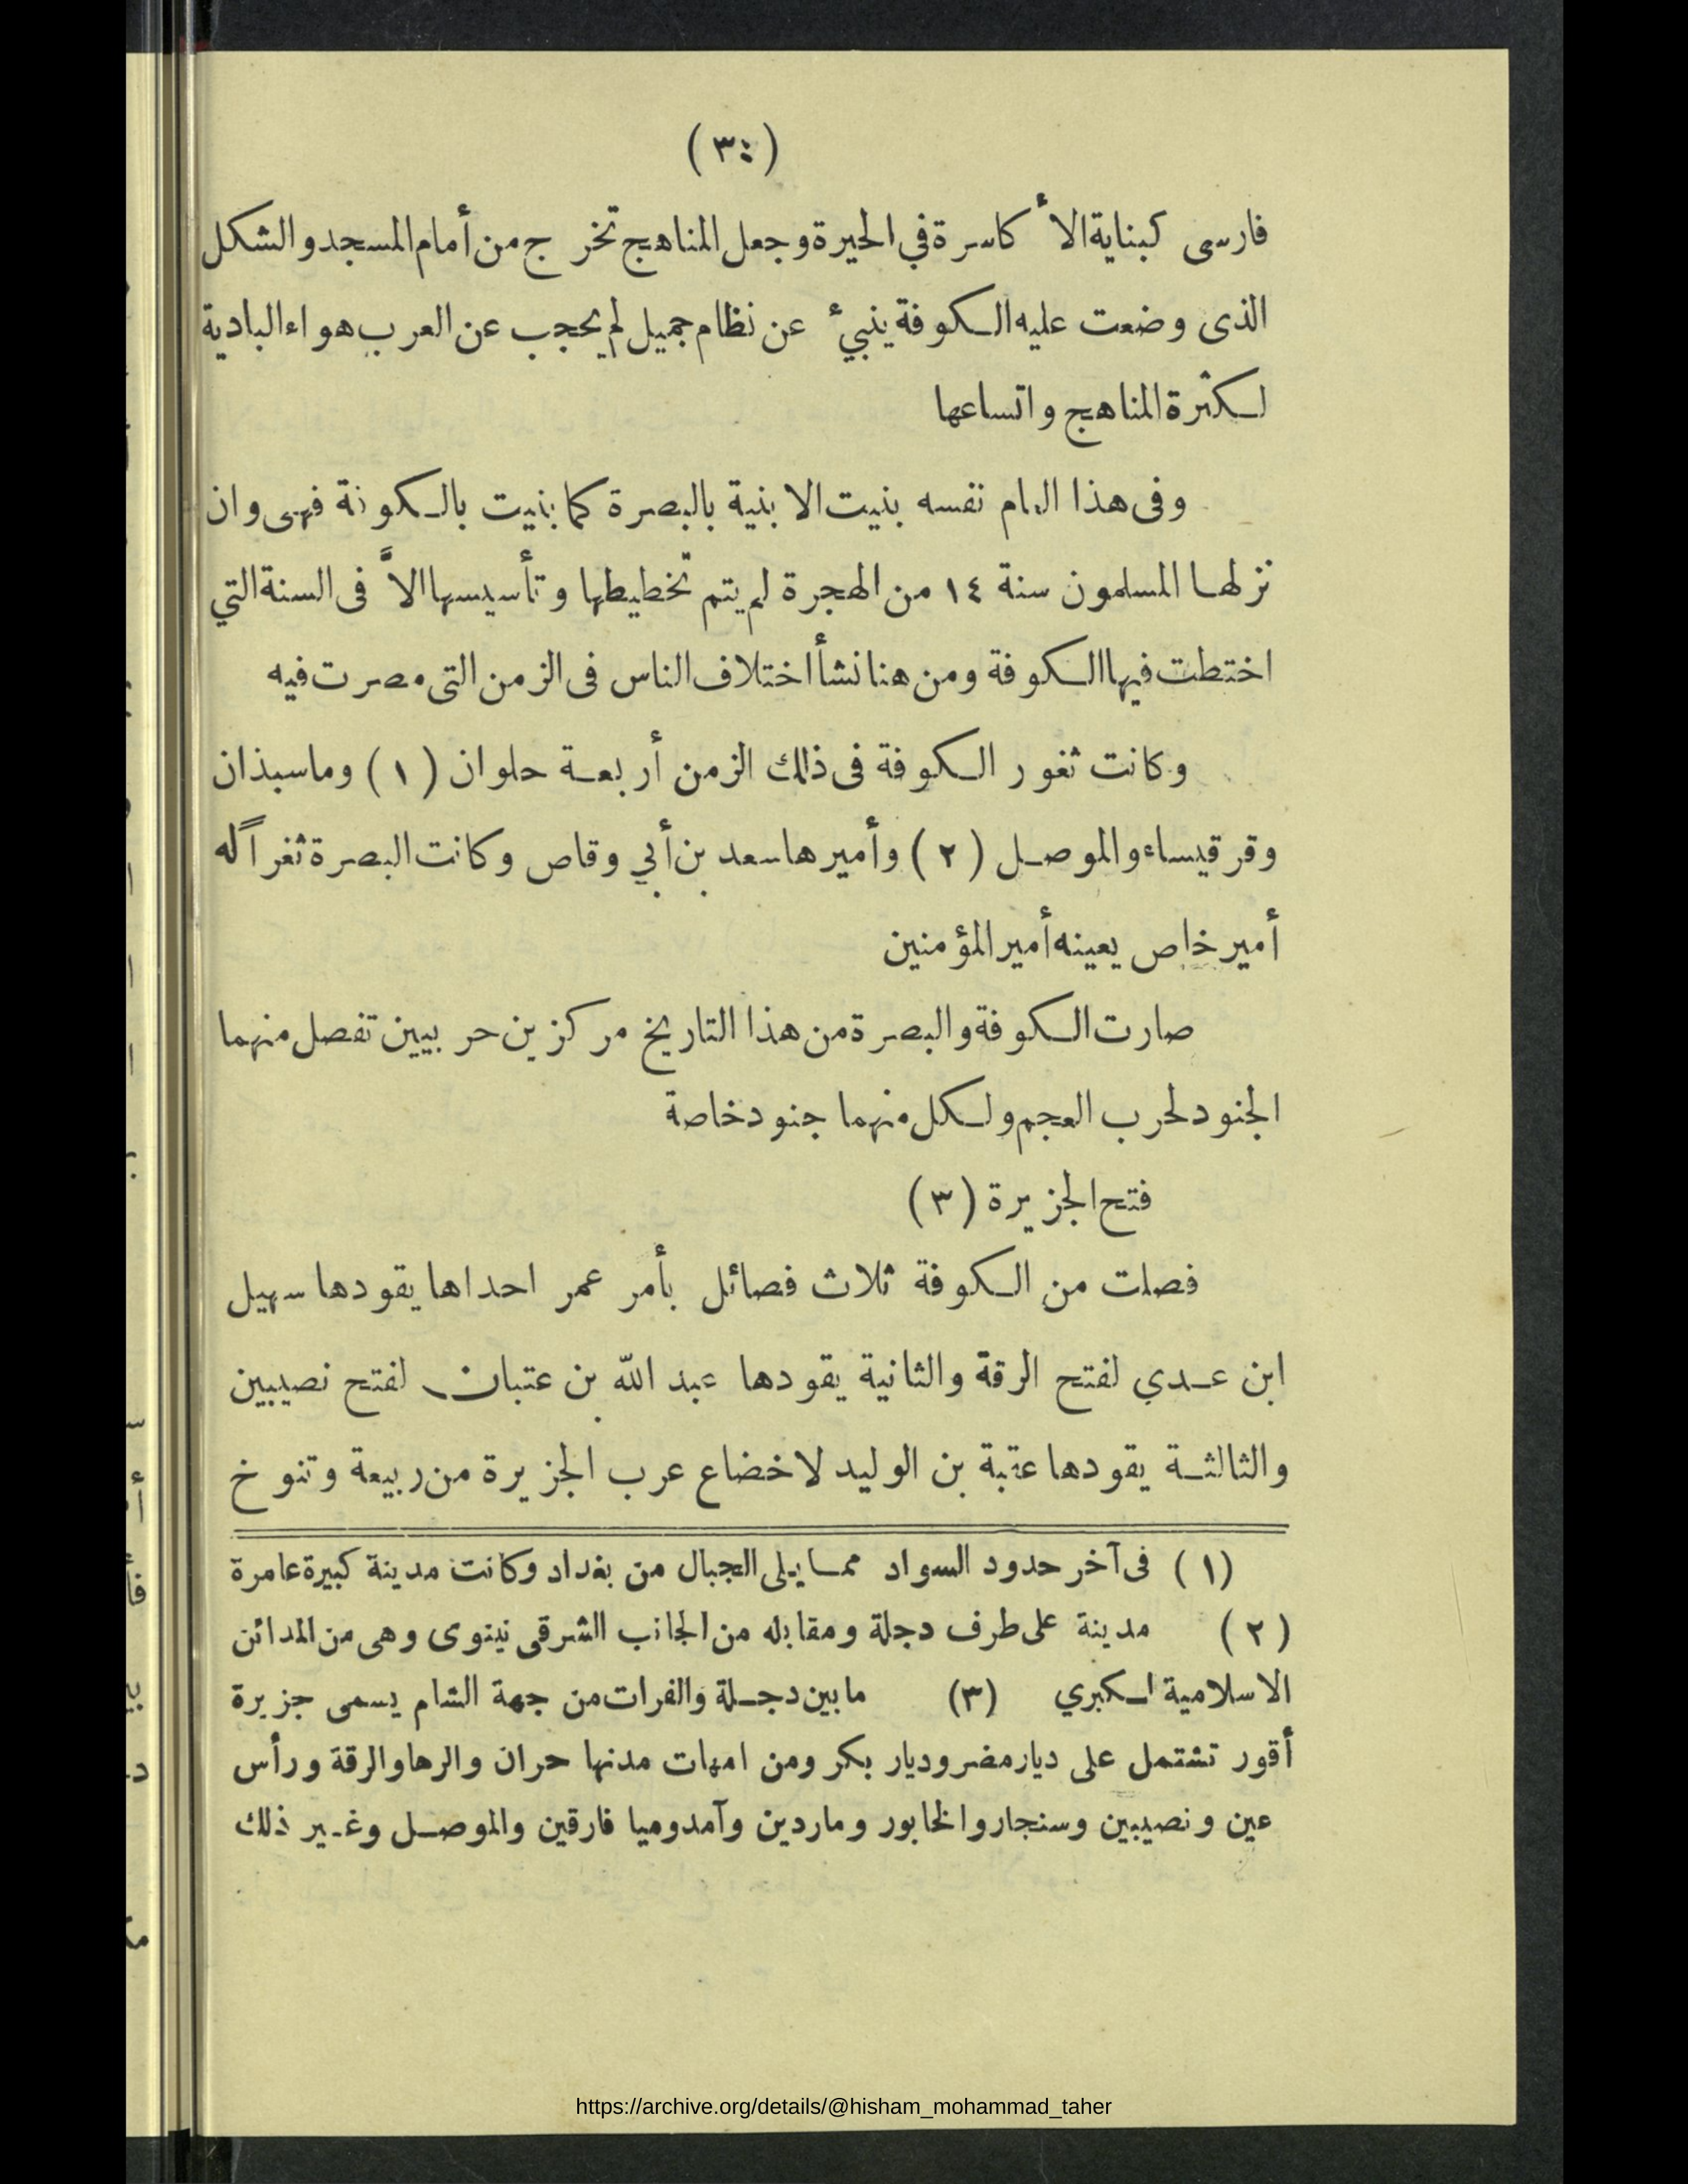 (٣٤)
فارسى كبناية الأكاسرة في الحيرة وجعل المناهج تخرج من أمام المسجد والشكل
الذى وضعت عليه الكوفة ينبئ عن نظام جميل لم يحجب عن العرب هواء البادية
لكثرة المناهج واتساعها
وفى هذا العام نفسه بنيت الابنية بالبصرة كما بنيت بالكوفة فهى وان
نزلها المسلمون سنة ١٤ من الهجرة لم يتم تخطيطها وتأسيسها الاَّ فى السنة التي
اختطت فيها الكوفة ومن هنا نشأ اختلاف الناس فى الزمن التى مصرت فيه
وكانت ثغور الكوفة فى ذلك الزمن أربعة حلوان (١) وماسبذان
وقرقيساء والموصل (٢) وأميرها سعد بن أبي وقاص وكانت البصرة ثغراً له
أمير خاص يعينه أمير المؤمنين
صارت الكوفة والبصرة من هذا التاريخ مركزين حربيين تفصل منهما
الجنود لحرب العجم ولكل منهما جنود خاصة
فتح الجزيرة (٣)
فصلت من الكوفة ثلاث فصائل بأمر عمر احداها يقودها سهيل
ابن عدي لفتح الرقة والثانية يقودها عبد الله بن عتبان لفتح نصيبين
والثالثة يقودها عتبة بن الوليد لاخضاع عرب الجزيرة من ربيعة وتنوخ
(١) فى آخر حدود السواد مما يلى الجبال من بغداد وكانت مدينة كبيرة عامرة
(٢) مدينة على طرف دجلة ومقابله من الجانب الشرقى نينوى وهى من المدائن
الاسلامية الكبري (٣) ما بين دجلة والفرات من جهة الشام يسمى جزيرة
أقور تشتمل على ديار مضر وديار بكر ومن امهات مدنها حران والرها والرقة ورأس
عين ونصيبين وسنجار والخابور وماردين وآمد وميا فارقين والموصل وغير ذلك
https://archive.org/details/@hisham_mohammad_taher